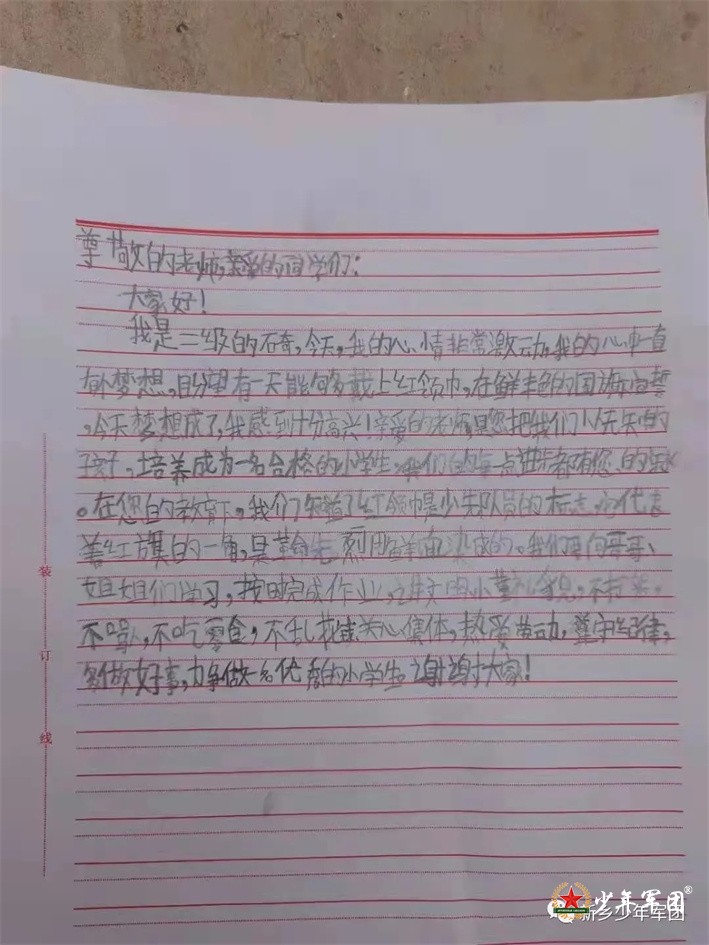 尊敬的老师,亲爱的同学们:
大家好!
我是三级的石奇,今天,我的心情非常激动,我的心中一直
有个梦想,盼望有一天能够戴上红领巾,在鲜艳的国旗宣誓
,今天梦想成了,我感到十分高兴!亲爱的老师,是您把我们从无知的
孩子,培养成为一名合格的小学生,我们的每一点进步都有您的
。在您的教育下,我们知道了红领巾是少先队员的标志,它代表
着红旗的一角,是革命先烈用鲜血染成的。我们要向哥哥、
姐姐们学习,按时完成作业,讲文明小懂礼貌,不打架,
不骂人,不吃零食,不乱花钱关心集体,热爱劳动,遵守纪律,
多做好事,力争做一名优秀的小学生。谢谢大家!
装
订
线
少年军团®
新乡少年军团